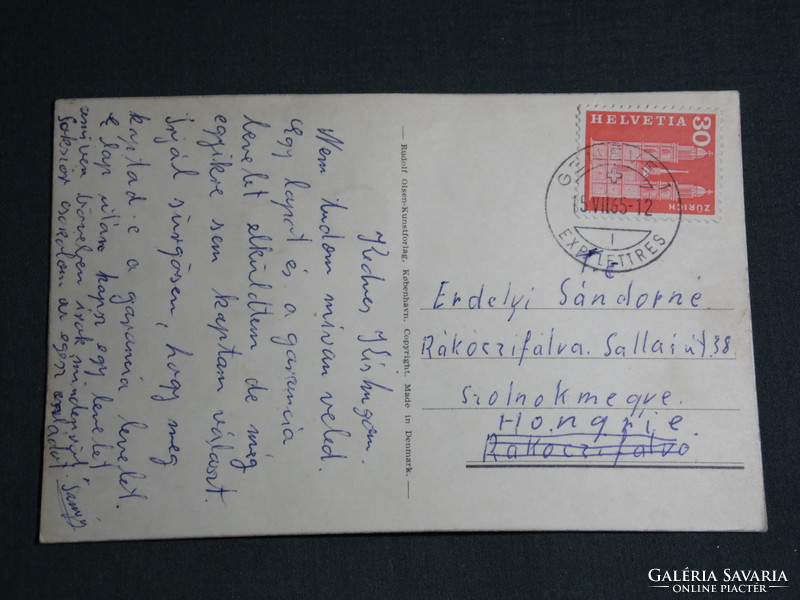 Kedves Kishugom.
Nem tudom mi van veled.
Egy lapot és a garencia
levelet elküldtem de még
egyikre sem kaptam választ.
Írjál sürgösen, hogy meg
kaptad-e a garancia levelet.
E lap után kapsz egy levelet
amiven böveben irok mindenröl.
Sokszor csokolom az egész családot. 
Rudolf Olsen-Kunstforlag, København. Copyright. Made in Denmark.
HELVETIA
30
ZÜRICH
15.VII.65-12
EXP. LETTRES
Erdelyi Sándorné.
Rákoczifalva. Sallai út 38.
Szolnokmegye.
Hongrie.
Rákoczifalva
GALÉRIA SAVARIA
ONLINE PIACTÉR